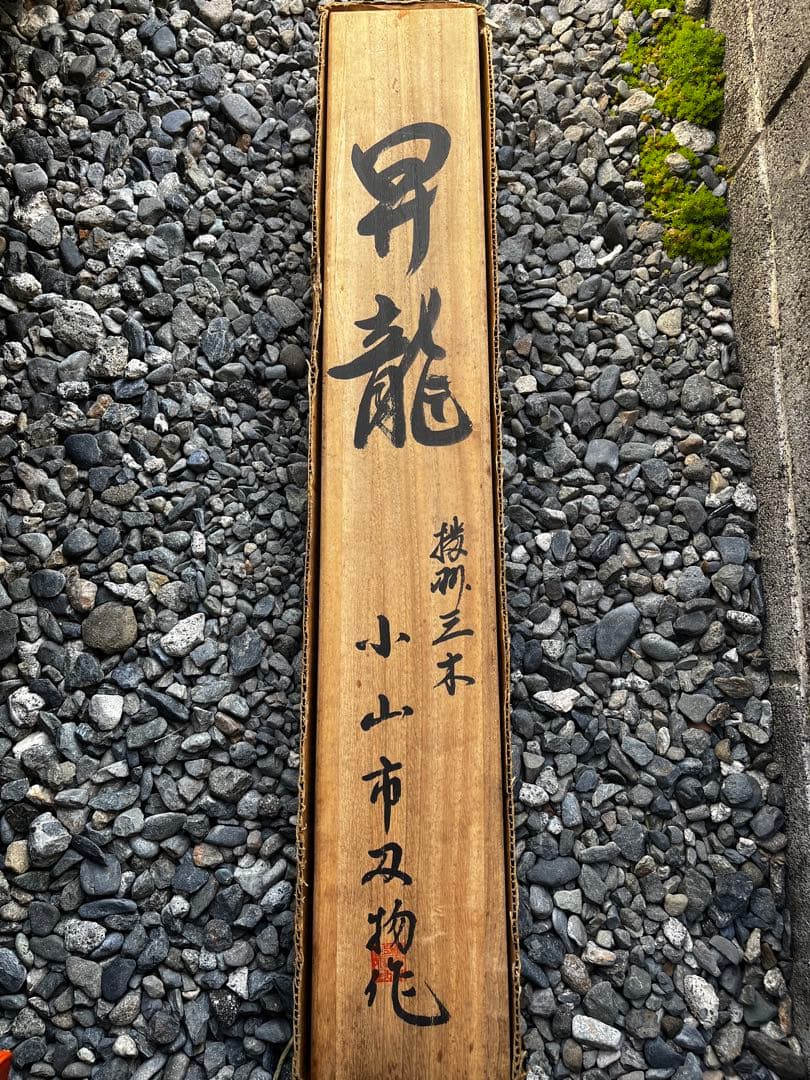 昇龍
播州三木
小山市刃物作